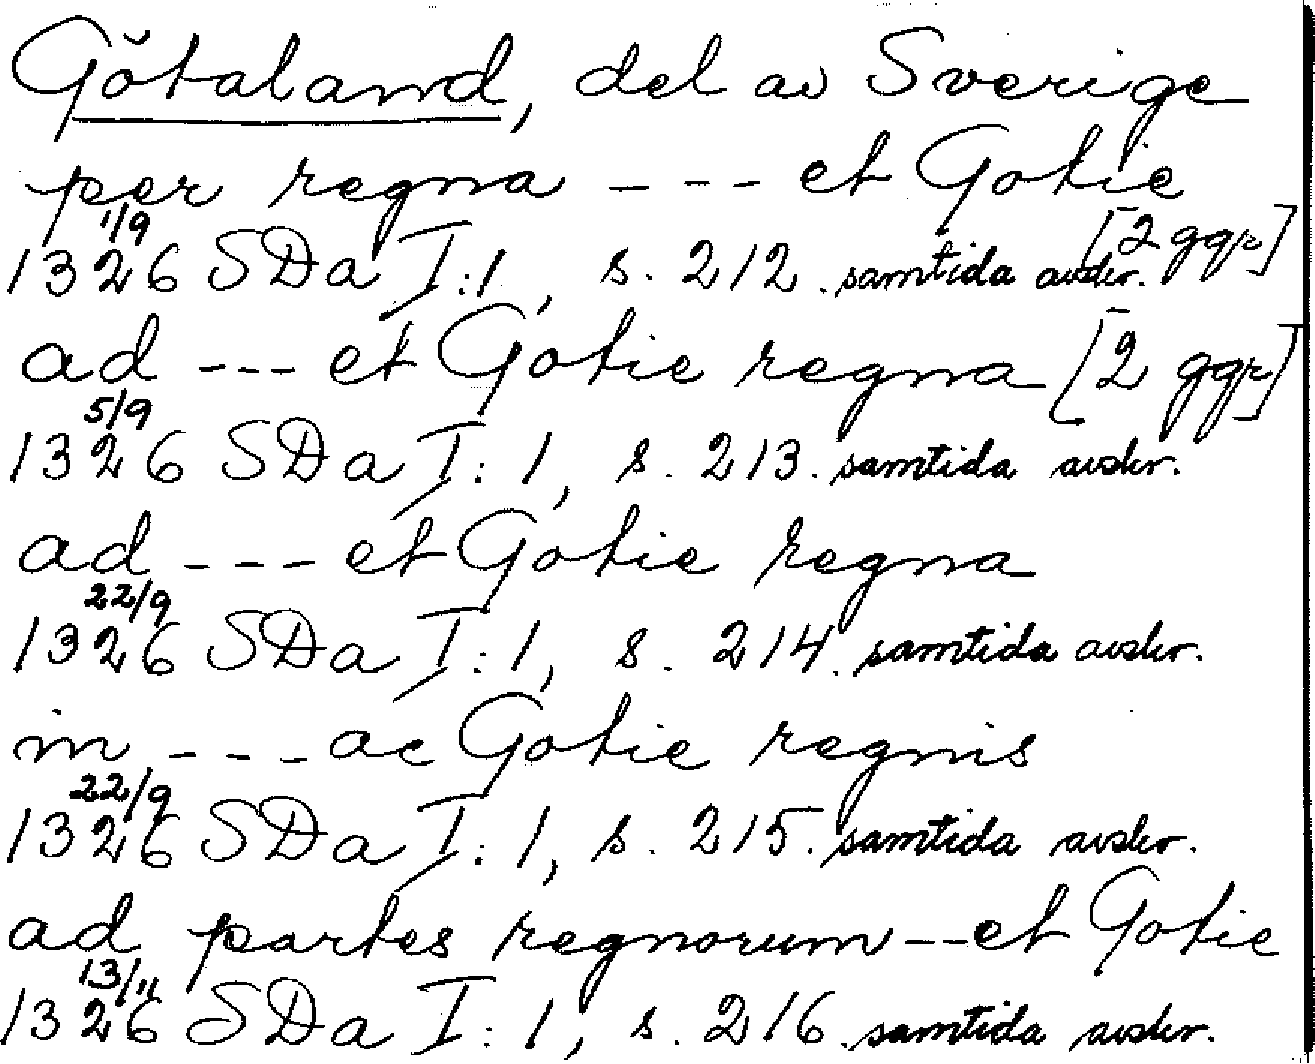 Götaland, del av Sverige
per regna --- et Gotie
[2 ggr]
1/9
1326 SDa I:1, s. 212. samtida avskr.
ad --- et Gotie regna [2 ggr]
5/9
1326 SDa I:1, s. 213. samtida avskr.
ad --- et Gotie regna
22/9
1326 SDa I:1, s. 214. samtida avskr.
in --- ac Gotie regnis
22/9
1326 SDa I:1, s. 215. samtida avskr.
ad partes regnorum -- et Gotie
13/11
1326 SDa I:1, s. 216. samtida avskr.